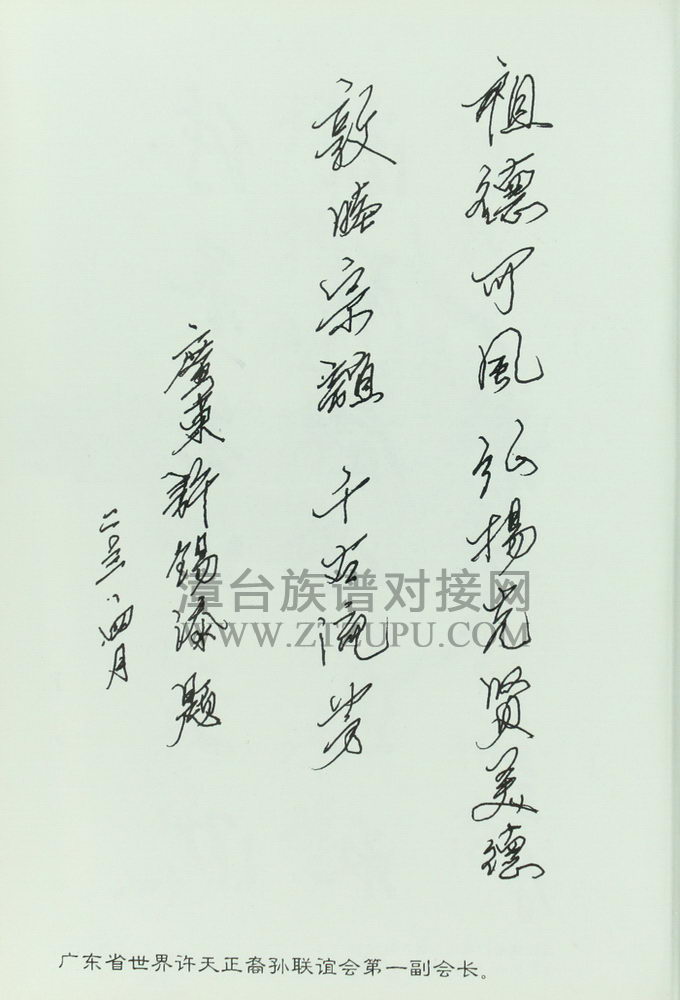 祖德可风弘扬先贤美德
敦睦宗谊千古流芳
廣東許锡添题
二〇〇三、四月
漳台族谱对接网
WWW.ZTZUPU.COM
广东省世界许天正裔孙联谊会第一副会长。